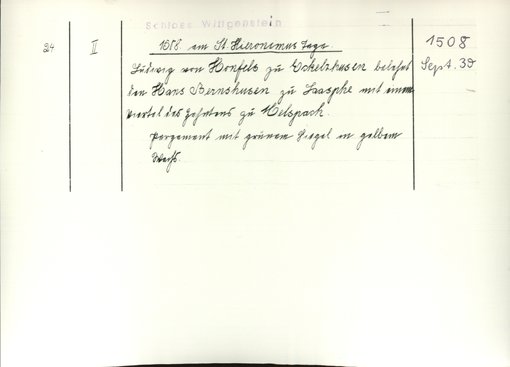 Schloss Wittgenstein
24 II 1508. am St. Hieronimus Tage. 1508
Ludwig von Honfels zu Eckelzhusen belehnt Sept. 30
den Hans Bernshusen zu Laasphe mit einem
Viertel des Zehntens zu Melspach.
Pergament mit grünem Siegel in gelbem
Wachs.